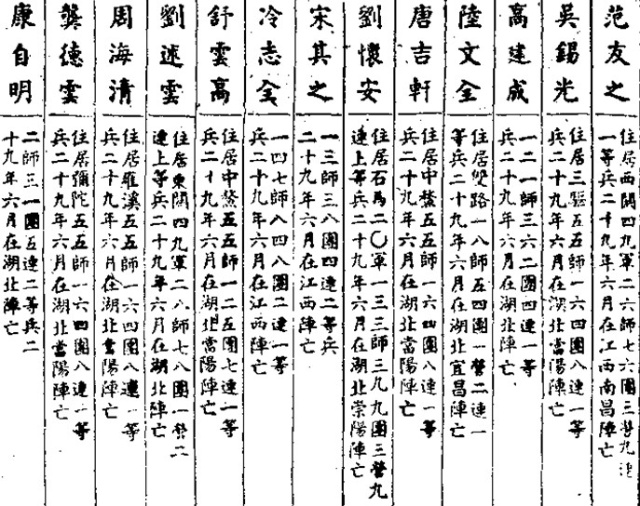 范友之
住居西關四九軍二六師七六團三營九連
一等兵二十九年六月在江西南昌陣亡
吳錫光
住居三驅五五師一六四團八連一等
兵二十九年六月在湖北當陽陣亡
高建成
一二一師三六二團四連一等
兵二十九年六月在湖北陣亡
陸文全
住居雙路一八師五四團一營二連一
等兵二十九年六月在湖北宜昌陣亡
唐吉軒
住居中鰲五五師一六四團八連一等
兵二十九年六月在湖北當陽陣亡
劉懷安
住居石馬二〇軍一三三師三九九團三營九
連上等兵二十九年六月在湖北崇陽陣亡
宋其之
一三師三八團四連二等兵
二十九年六月在江西陣亡
冷志全
一四七師八四八團二連一等
兵二十九年六月在江西陣亡
舒雲高
住居中鰲五五師一二五團七連一等
兵二十九年六月在湖北當陽陣亡
劉述雲
住居東關四九軍二八師七八團一營二
連上等兵二十九年六月在湖北陣亡
周海清
住居雍溪五五師一六四團八連一等
兵二十九年六月在湖北當陽陣亡
龔德雲
住居彌陀五五師一六四團八連一等
兵二十九年六月在湖北當陽陣亡
康自明
二師三一團五連二等兵二
十九年六月在湖北陣亡